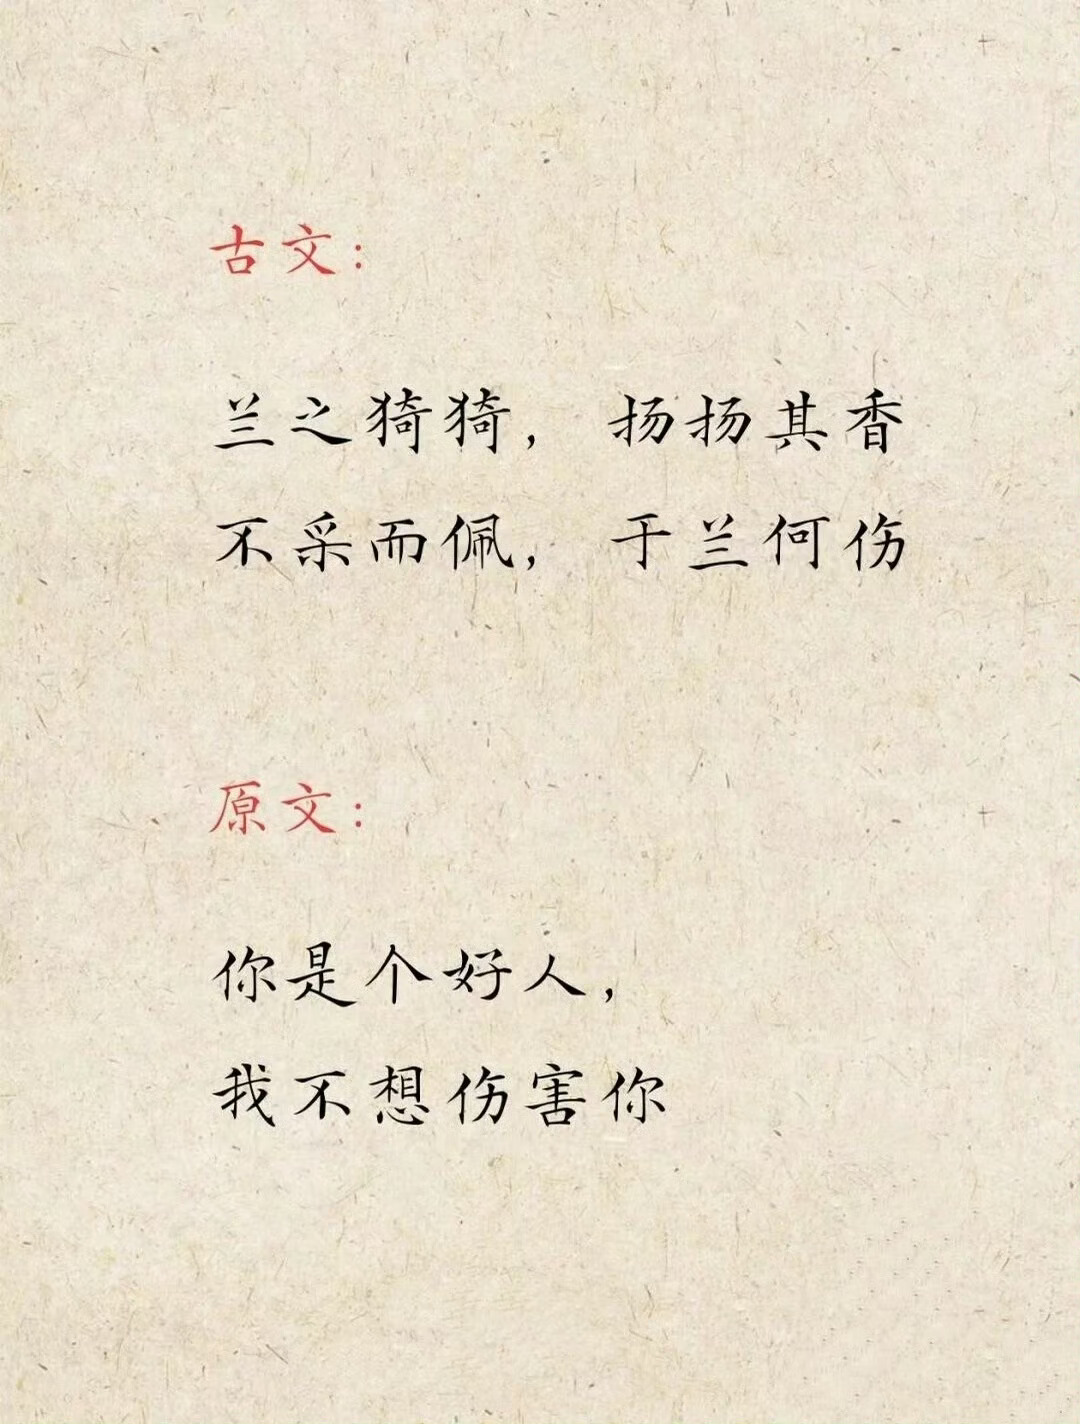 古文：
兰之猗猗，扬扬其香
不采而佩，于兰何伤
原文：
你是个好人，
我不想伤害你